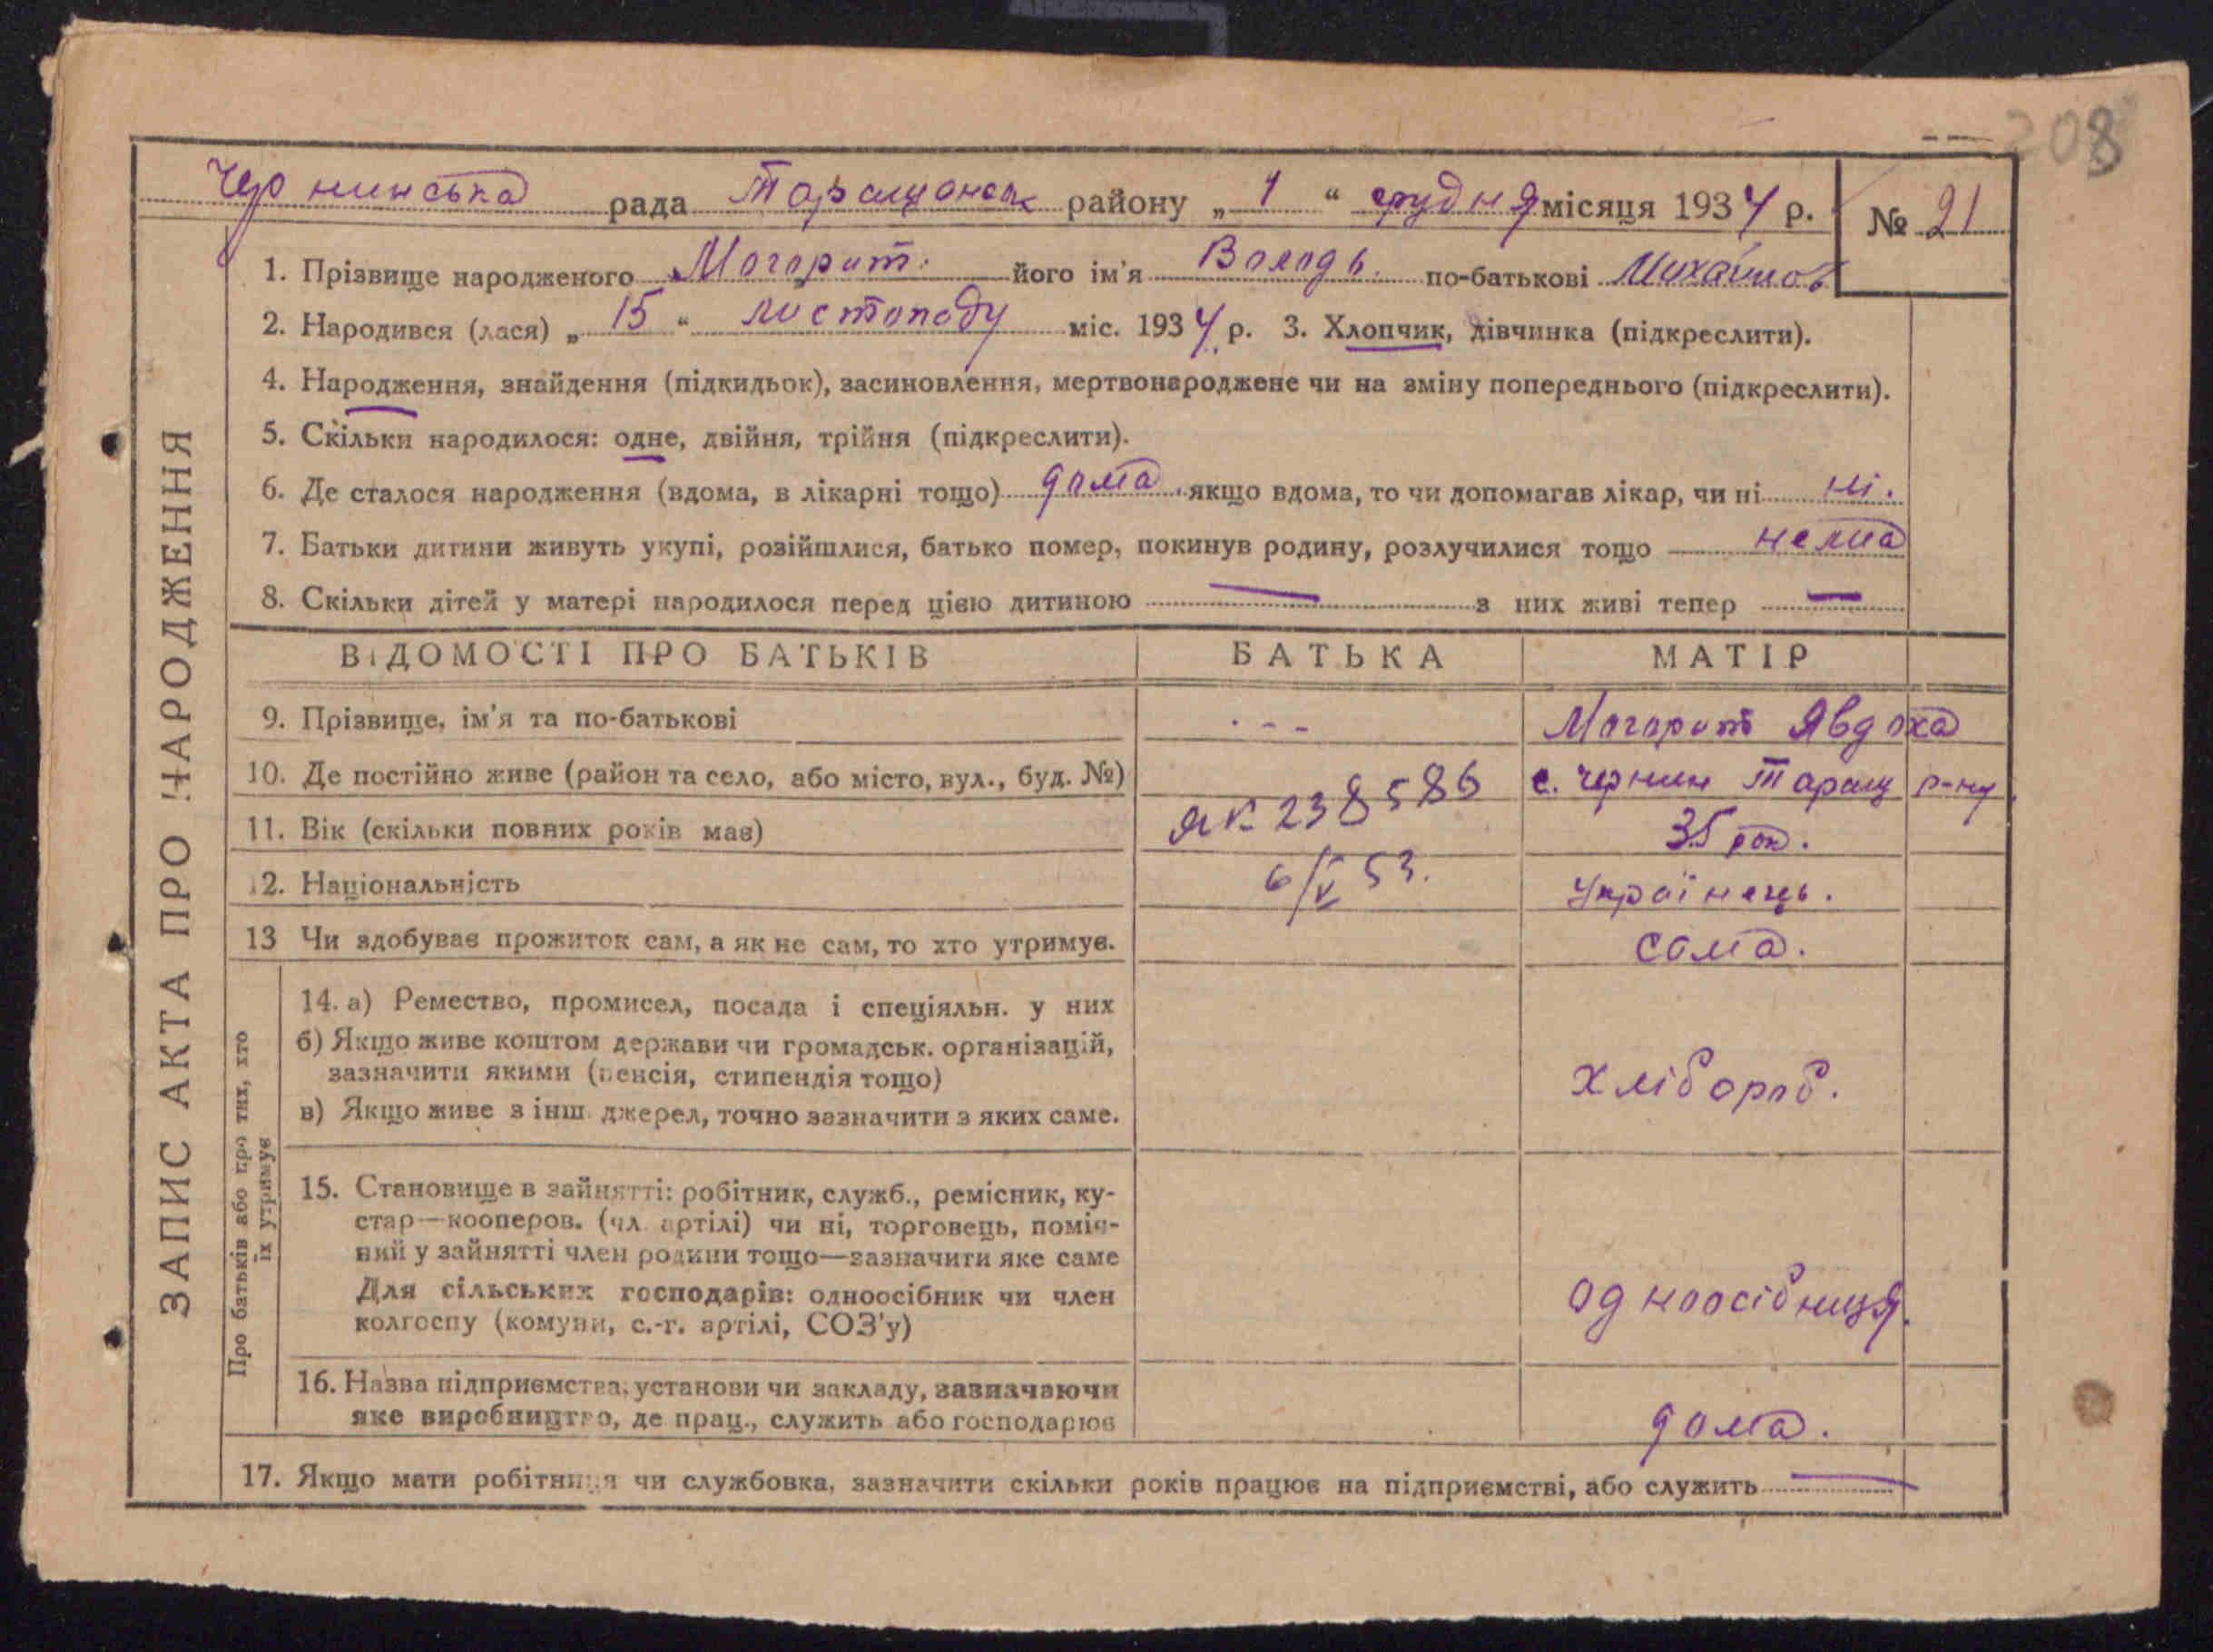 208
Чернинська рада Таращанськ району „ 1 “ грудня місяця 1934 р. № 21
1. Прізвище народженого Могорит. його ім'я Володь. по-батькові Михайлов
2. Народився (лася) „ 15 “ листопаду міс. 1934 р. 3. Хлопчик, дівчинка (підкреслити).
4. Народження, знайдення (підкидьок), засиновлення, мертвонароджене чи на зміну попереднього (підкреслити).
5. Скільки народилося: одне, двійня, трійня (підкреслити).
6. Де сталося народження (вдома, в лікарні тощо) дома. якщо вдома, то чи допомагав лікар, чи ні ні.
7. Батьки дитини живуть укупі, розійшлися, батько помер, покинув родину, розлучилися тощо — нема
8. Скільки дітей у матері народилося перед цією дитиною — з них живі тепер —
ЗАПИС АКТА ПРО НАРОДЖЕННЯ
ВІДОМОСТІ ПРО БАТЬКІВ БАТЬКА МАТІР
9. Прізвище, ім'я та по-батькові - - - Могорит Явдоха
10. Де постійно живе (район та село, або місто, вул., буд. №) с. Чернин Таращ р-ну
ЯК 238586
11. Вік (скільки повних років має) 35 рок.
12. Національність 6/V 53. Українець.
13 Чи здобуває прожиток сам, а як не сам, то хто утримує. сама.
Про батьків або про тих, хто
їх утримує
14. а) Ремество, промисел, посада і спеціяльн. у них
б) Якщо живе коштом держави чи громадськ. організацій,
зазначити якими (пенсія, стипендія тощо) хлібороб.
в) Якщо живе з інш. джерел, точно зазначити з яких саме.
15. Становище в зайнятті: робітник, служб., ремісник, ку-
стар—кооперов. (чл. артілі) чи ні, торговець, поміч-
ний у зайнятті член родини тощо—зазначити яке саме
Для сільських господарів: одноосібник чи член одноосібниця.
колгоспу (комуни, с.-г. артілі, СОЗ'у)
16. Назва підприємства, установи чи закладу, зазначаючи
яке виробництво, де прац., служить або господарює дома.
17. Якщо мати робітниця чи службовка, зазначити скільки років працює на підприємстві, або служить —